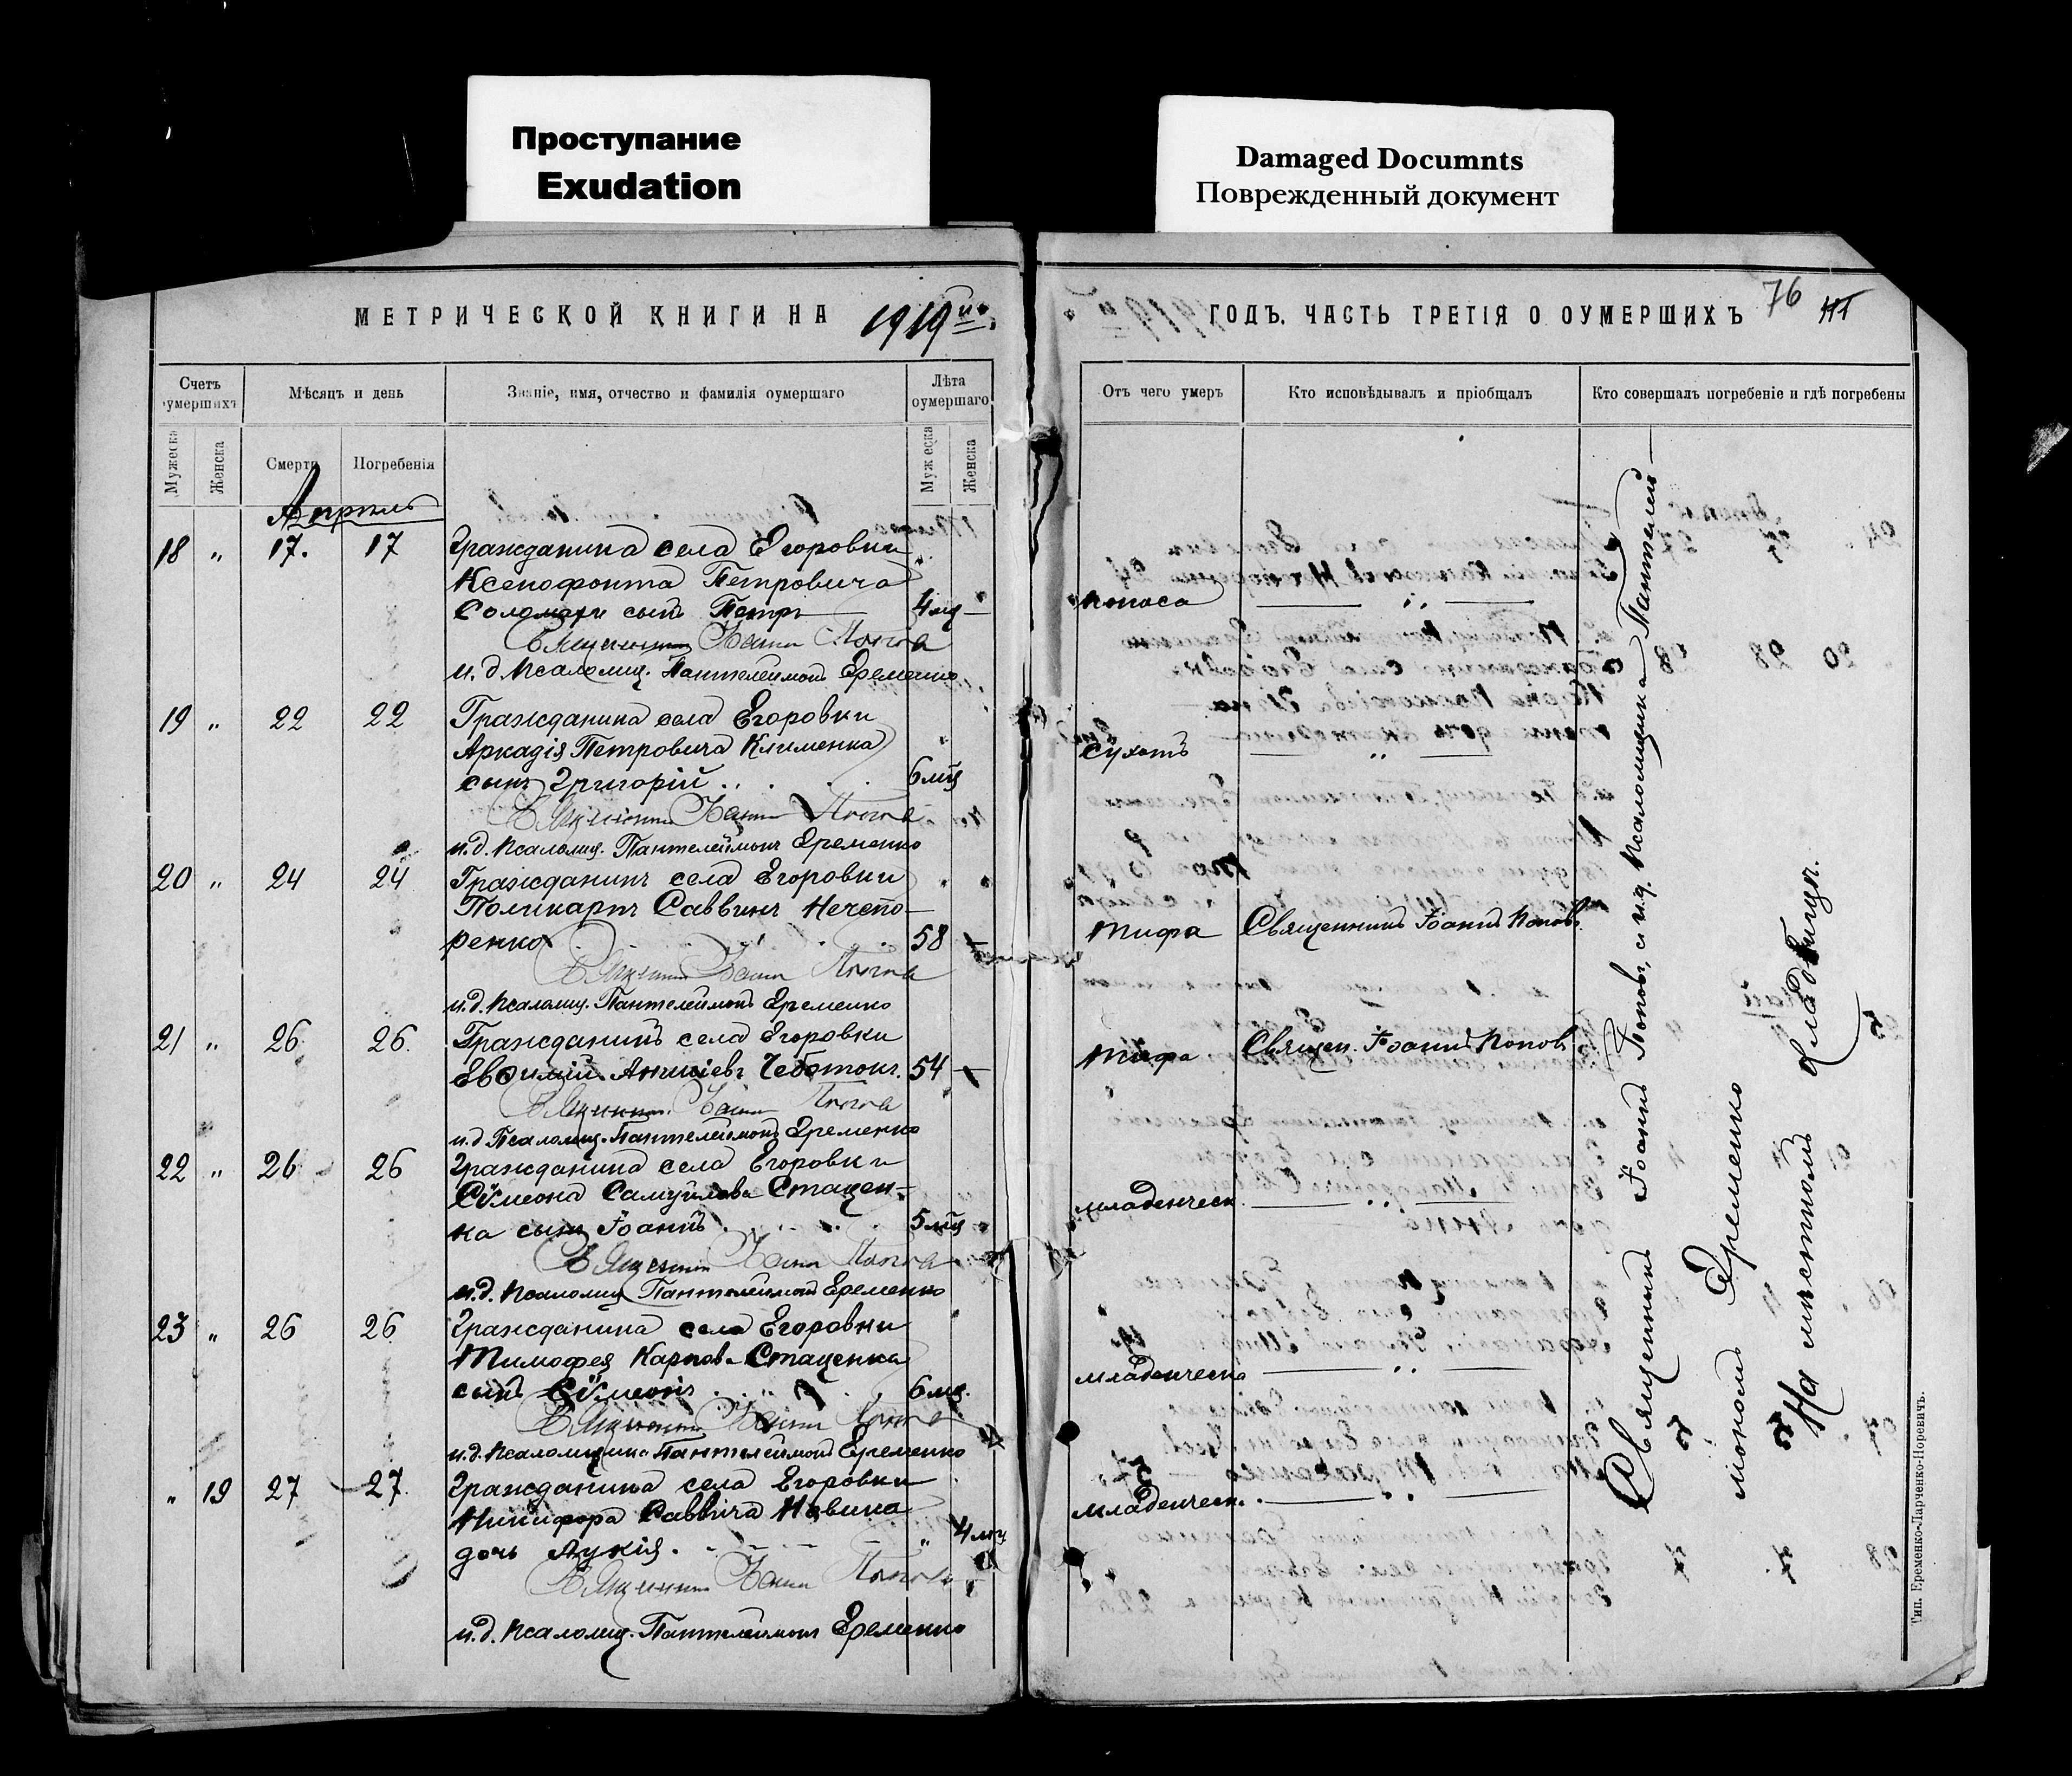 Проступание
Exudation
Damaged Documnts
Поврежденный документ
МЕТРИЧЕСКОЙ КНИГИ НА 1919
ГОДЪ. ЧАСТЬ ТРЕТІЯ О ОУМЕРШИХЪ 76
Счетъ умершихъ
Мѣсяцъ и день
Званіе, имя, отчество и фамилія оумершаго
Лѣта оумершаго
Отъ чего умеръ
Кто исповѣдывалъ и пріобщалъ
Кто совершалъ погребеніе и гдѣ погребены
Мужеска
Женска
Смерти
Погребенія
Мужеска
Женска
Апрель
18 " 17. 17 Гражданина села Егоровки
Ксенофонта Петровича
сынъ Петръ 4 мц поноса
Священникъ Іоаннъ Поповъ
и.д. Псаломщ. Пантелеимонъ Еременко
19 " 22 22 Гражданина села Егоровки
Аркадія Петровича Клименка
сынъ Григорій 6 мц сухотъ "
Священникъ Іоаннъ Поповъ
и.д. Псаломщ. Пантелеймонъ Еременко
20 " 24 24 Гражданинъ села Егоровки
Поликарпъ Саввинъ Нечепо-
ренко 58 — тифа Священникъ Іоаннъ Поповъ
Священникъ Іоаннъ Поповъ
и.д. Псаломщ. Пантелеимонъ Еременко
21 " 26 26. Гражданинъ села Егоровки
Евѳимій Чеботокъ. 54 — тифа Священ. Іоаннъ Поповъ
Священникъ Іоаннъ Поповъ
и.д. Псаломщ. Пантелеимонъ Еременко
22 " 26 26 Гражданина села Егоровки
Сѵмеона Самуилова Стацен-
ка сынъ Іоаннъ 5 мц младенческ. "
Священникъ Іоаннъ Поповъ
и.д. Псаломщ. Пантелеимонъ Еременко
23 " 26 26 Гражданина села Егоровки
Тимофея Карпова Стаценка
сынъ Сѵмеонъ 6 мц. младенческа "
Священникъ Іоаннъ Поповъ
и.д. Псаломщика Пантелеимонъ Еременко
" 19 27 27. Гражданина села Егоровки
Никифора Саввича
дочь Лукія. " 4 мц младенческ. "
Священникъ Іоаннъ Поповъ
и.д. Псаломщ. Пантелеимонъ Еременко
Священникъ Іоаннъ Поповъ, и и.д. Псаломщика Пантелей-
мономъ Еременко
На мѣстномъ кладбищѣ.
Тип. Еременко-Ларченко-Поревичъ.